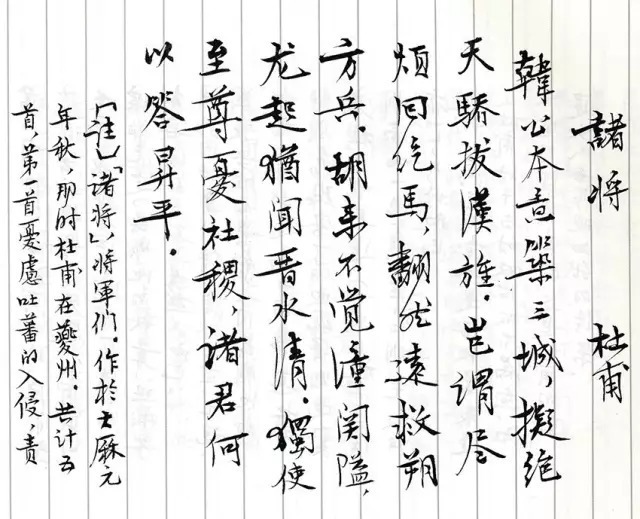 諸将 杜甫
韓公本意築三城，擬絶
天驕拔漢旌。岂謂尽
烦回纥馬，翻然遠救朔
方兵。胡来不觉潼関隘，
龙起猶聞晋水清。獨使
至尊憂社稷，諸君何
以答昇平。
「註」「諸将」，将軍们。作於大厤元
年秋，那时杜甫在夔州。共计五
首，第一首憂慮吐蕃的入侵，责